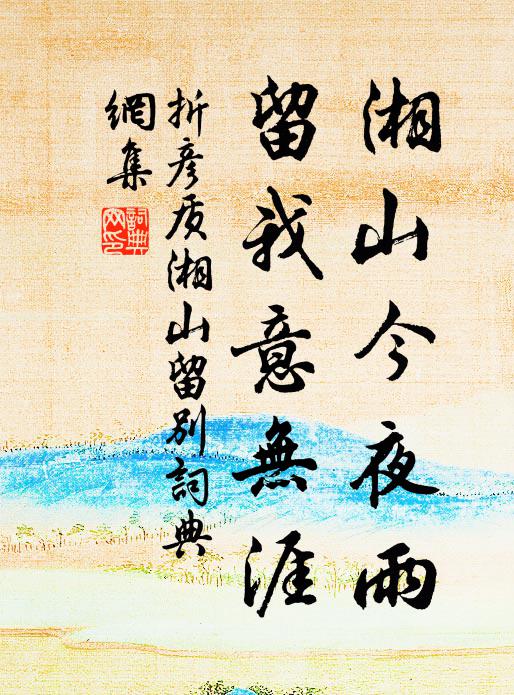 湘山今夜雨
留我意無涯
折彥质湘山留别詞典
網集
詞典
网印